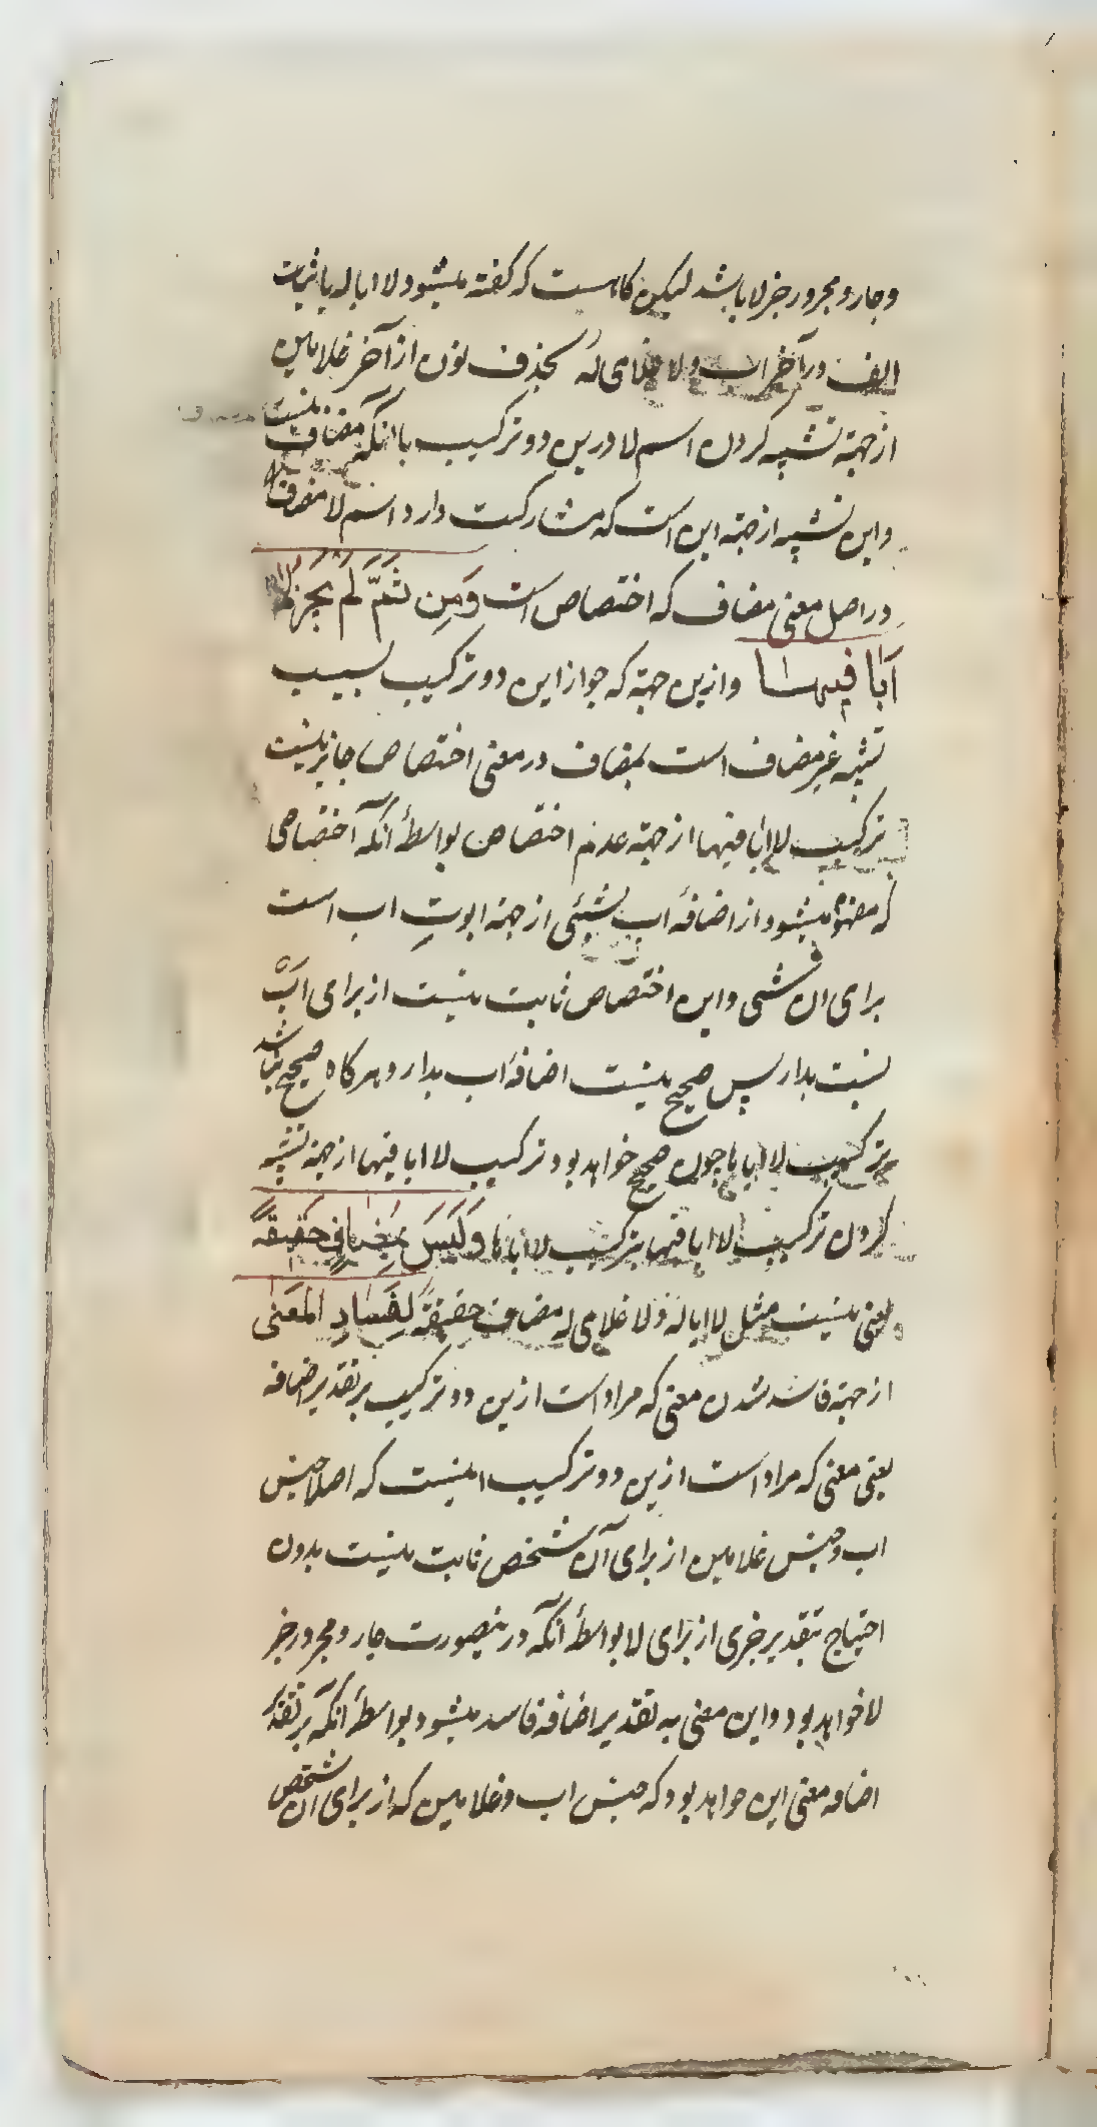 و جار و مجرور خبر لا باشد لیکن کاهست که کفته میشود لا ابا له باثبات
الف در آخر اب و لا غلامی لهُ بحذف نون از آخر غلامین
از جهة تشبیه کردن اسم لا درین دو ترکیب با آنکه مضاف نیست بمضاف
و این تشبیه از جهة این است که مشارکت دارد اسم لا مضاف را
در اصل معنی مضاف که اختصاص است وَمِن ثَمَّ لَم یَجُز لا
اَبا فیها وازین جهة که جواز این دو ترکیب بسبب
تشبیه غیر مضاف است بمضاف در معنی اختصاص جایز نیست
ترکیب لا ابا فیها از جهة عدم اختصاص بواسطهٔ آنکه اختصاصی
که مفهوم میشود از اضافهٔ اب بشیئی از جهة ابوتِ اب است
برای ان شی و این اختصاص ثابت نیست از برای اب
نسبت بدار پس صحیح نیست اضافهٔ اب بدار و هر کاه صحیح نباشد
ترکیب لا اباها چون صحیح خواهد بود ترکیب لا ابا فیها از جهة تشبیه
کردن ترکیب لا ابا فیها بترکیب لا اباها وَلَیسَ بِمُضافٍ حَقیقَةً
یعنی نیست مثل لا ابا له و لا غلامی له مضاف حقیقةً لِفَسادِ المَعنی
از جهة فاسد شدن معنی که مراد است ازین دو ترکیب بر تقدیر اضافه
یعنی معنی که مراد است ازین دو ترکیب اینست که اصلا جنس
اب و جنس غلامین از برای آن شخص ثابت نیست بدون
احتیاج بتقدیر خبری از برای لا بواسطهٔ آنکه درینصورت جار و مجرور خبر
لا خواهد بود و این معنی به تقدیر اضافه فاسد میشود بواسطهٔ آنکه بر تقدیر
اضافه معنی این خواهد بود که جنس اب و غلامین که از برای ان شخص